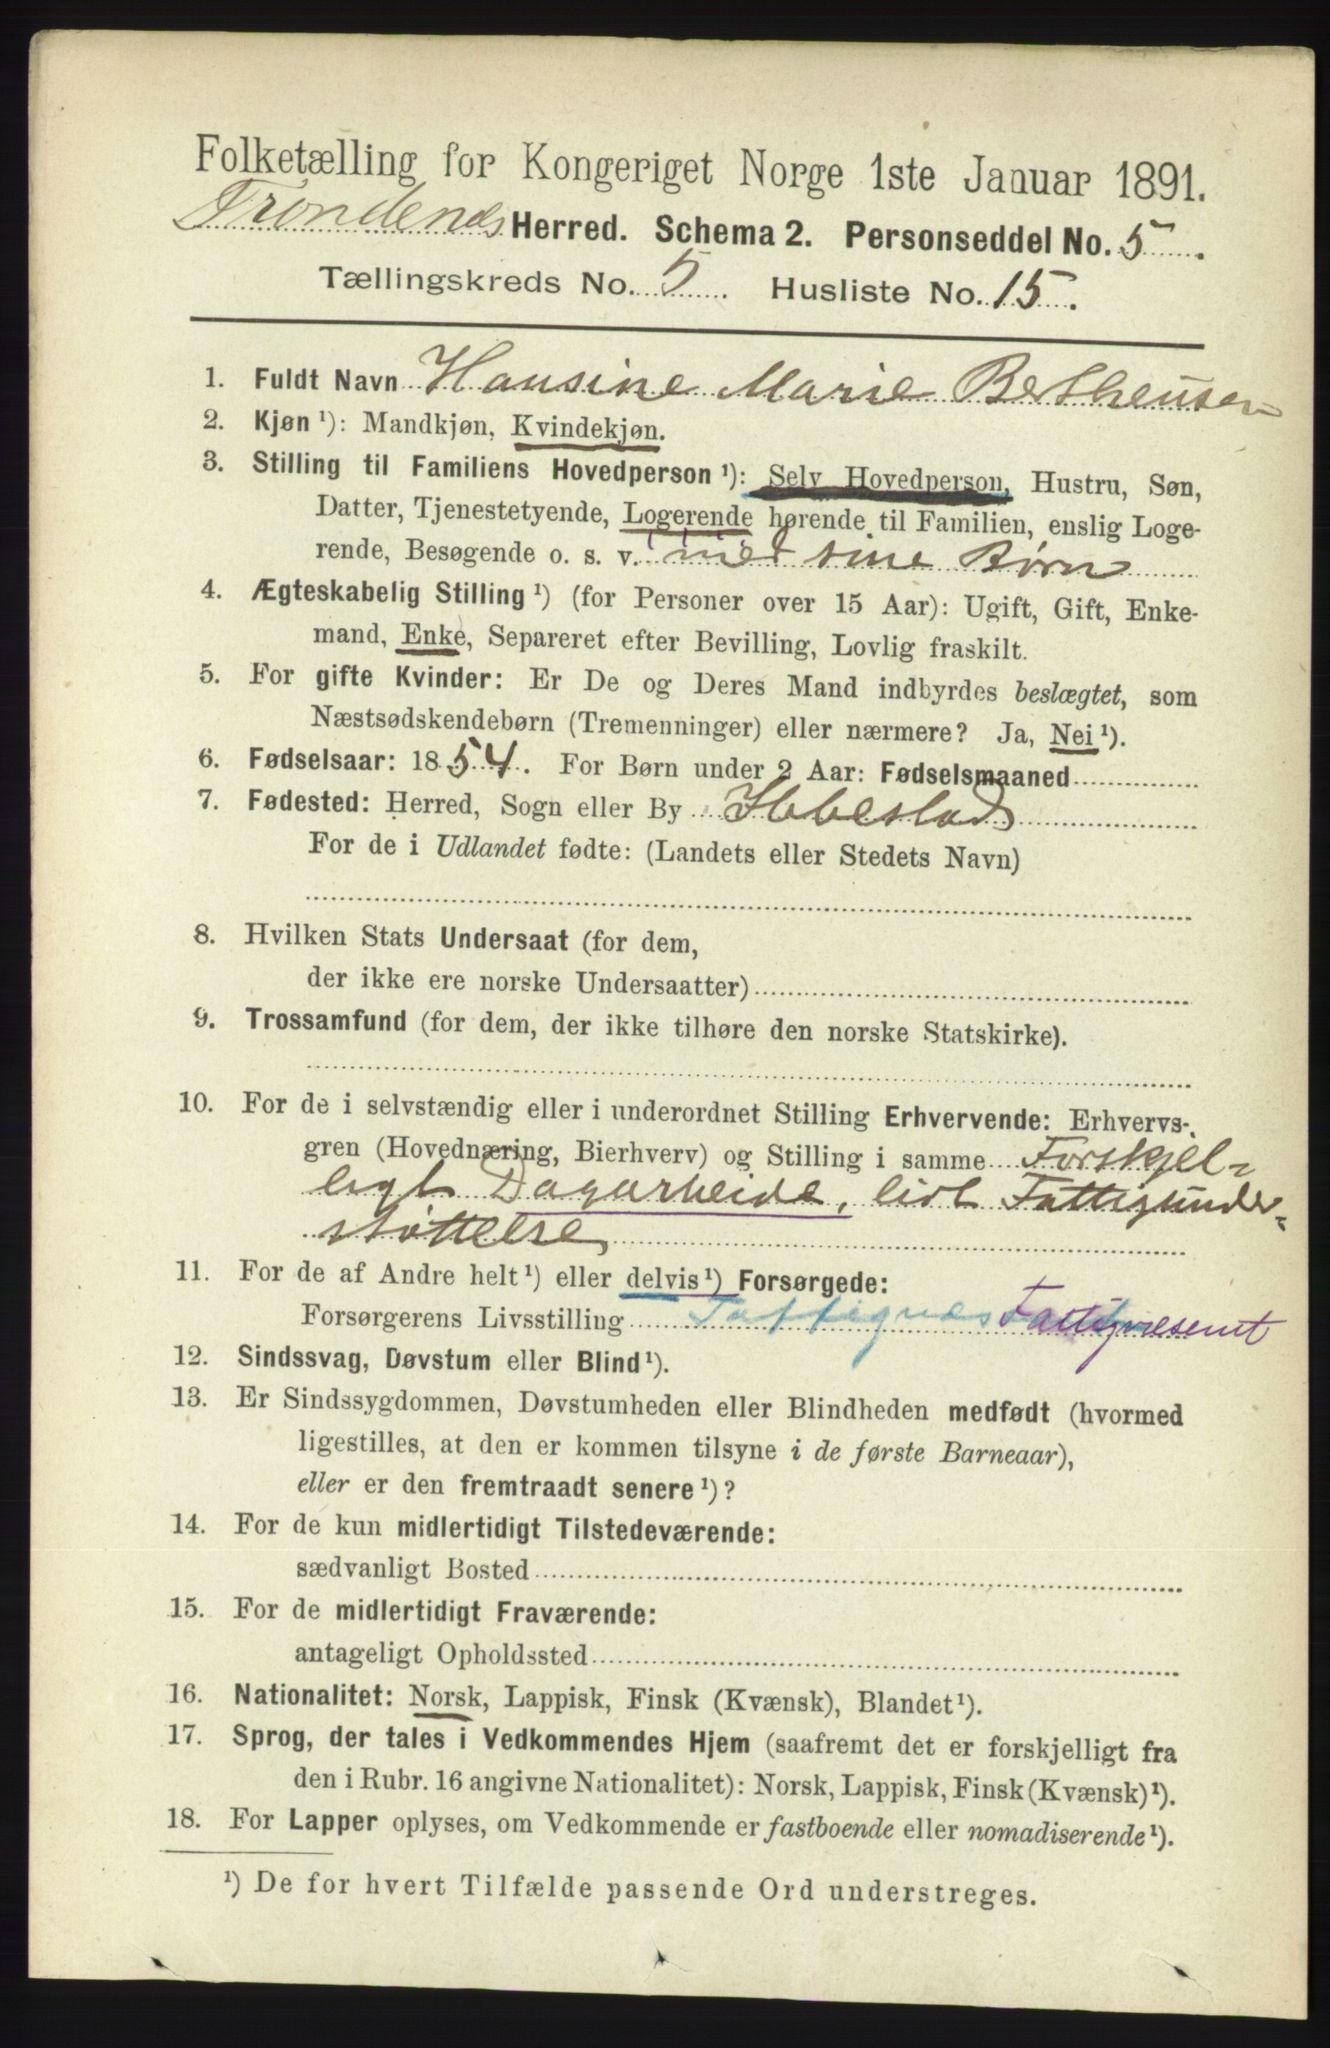 Folketælling for Kongeriget Norge 1ste Januar 1891.
Trondenes Herred. Schema 2. Personseddel No. 5.
Tællingskreds No. 5. Husliste No. 15.
1. Fuldt Navn Hansine Marie Bertheusen
2. Kjøn ¹): Mandkjøn, Kvindekjøn.
3. Stilling til Familiens Hovedperson ¹): Selv Hovedperson, Hustru, Søn,
Datter, Tjenestetyende, Logerende hørende til Familien, enslig Loge-
rende, Besøgende o. s. v. med sine Børn
4. Ægteskabelig Stilling ¹) (for Personer over 15 Aar): Ugift, Gift, Enke-
mand, Enke, Separeret efter Bevilling, Lovlig fraskilt.
5. For gifte Kvinder: Er De og Deres Mand indbyrdes beslægtet, som
Næstsødskendebørn (Tremenninger) eller nærmere? Ja, Nei ¹).
6. Fødselsaar: 1854. For Børn under 2 Aar: Fødselsmaaned
7. Fødested: Herred, Sogn eller By Ibbestad
For de i Udlandet fødte: (Landets eller Stedets Navn)
8. Hvilken Stats Undersaat (for dem,
der ikke ere norske Undersaatter)
9. Trossamfund (for dem, der ikke tilhøre den norske Statskirke).
10. For de i selvstændig eller i underordnet Stilling Erhvervende: Erhvervs-
gren (Hovednæring, Bierhverv) og Stilling i samme Forskjel-
ligt Dagarbeide, lidt Fattigunder-
støttelse
11. For de af Andre helt ¹) eller delvis ¹) Forsørgede:
Forsørgerens Livsstilling Fattigvæsenet
12. Sindssvag, Døvstum eller Blind ¹).
13. Er Sindssygdommen, Døvstumheden eller Blindheden medfødt (hvormed
ligestilles, at den er kommen tilsyne i de første Barneaar),
eller er den fremtraadt senere ¹)?
14. For de kun midlertidigt Tilstedeværende:
sædvanligt Bosted
15. For de midlertidigt Fraværende:
antageligt Opholdssted
16. Nationalitet: Norsk, Lappisk, Finsk (Kvænsk), Blandet ¹).
17. Sprog, der tales i Vedkommendes Hjem (saafremt det er forskjelligt fra
den i Rubr. 16 angivne Nationalitet): Norsk, Lappisk, Finsk (Kvænsk) ¹).
18. For Lapper oplyses, om Vedkommende er fastboende eller nomadiserende ¹).
¹) De for hvert Tilfælde passende Ord understreges.